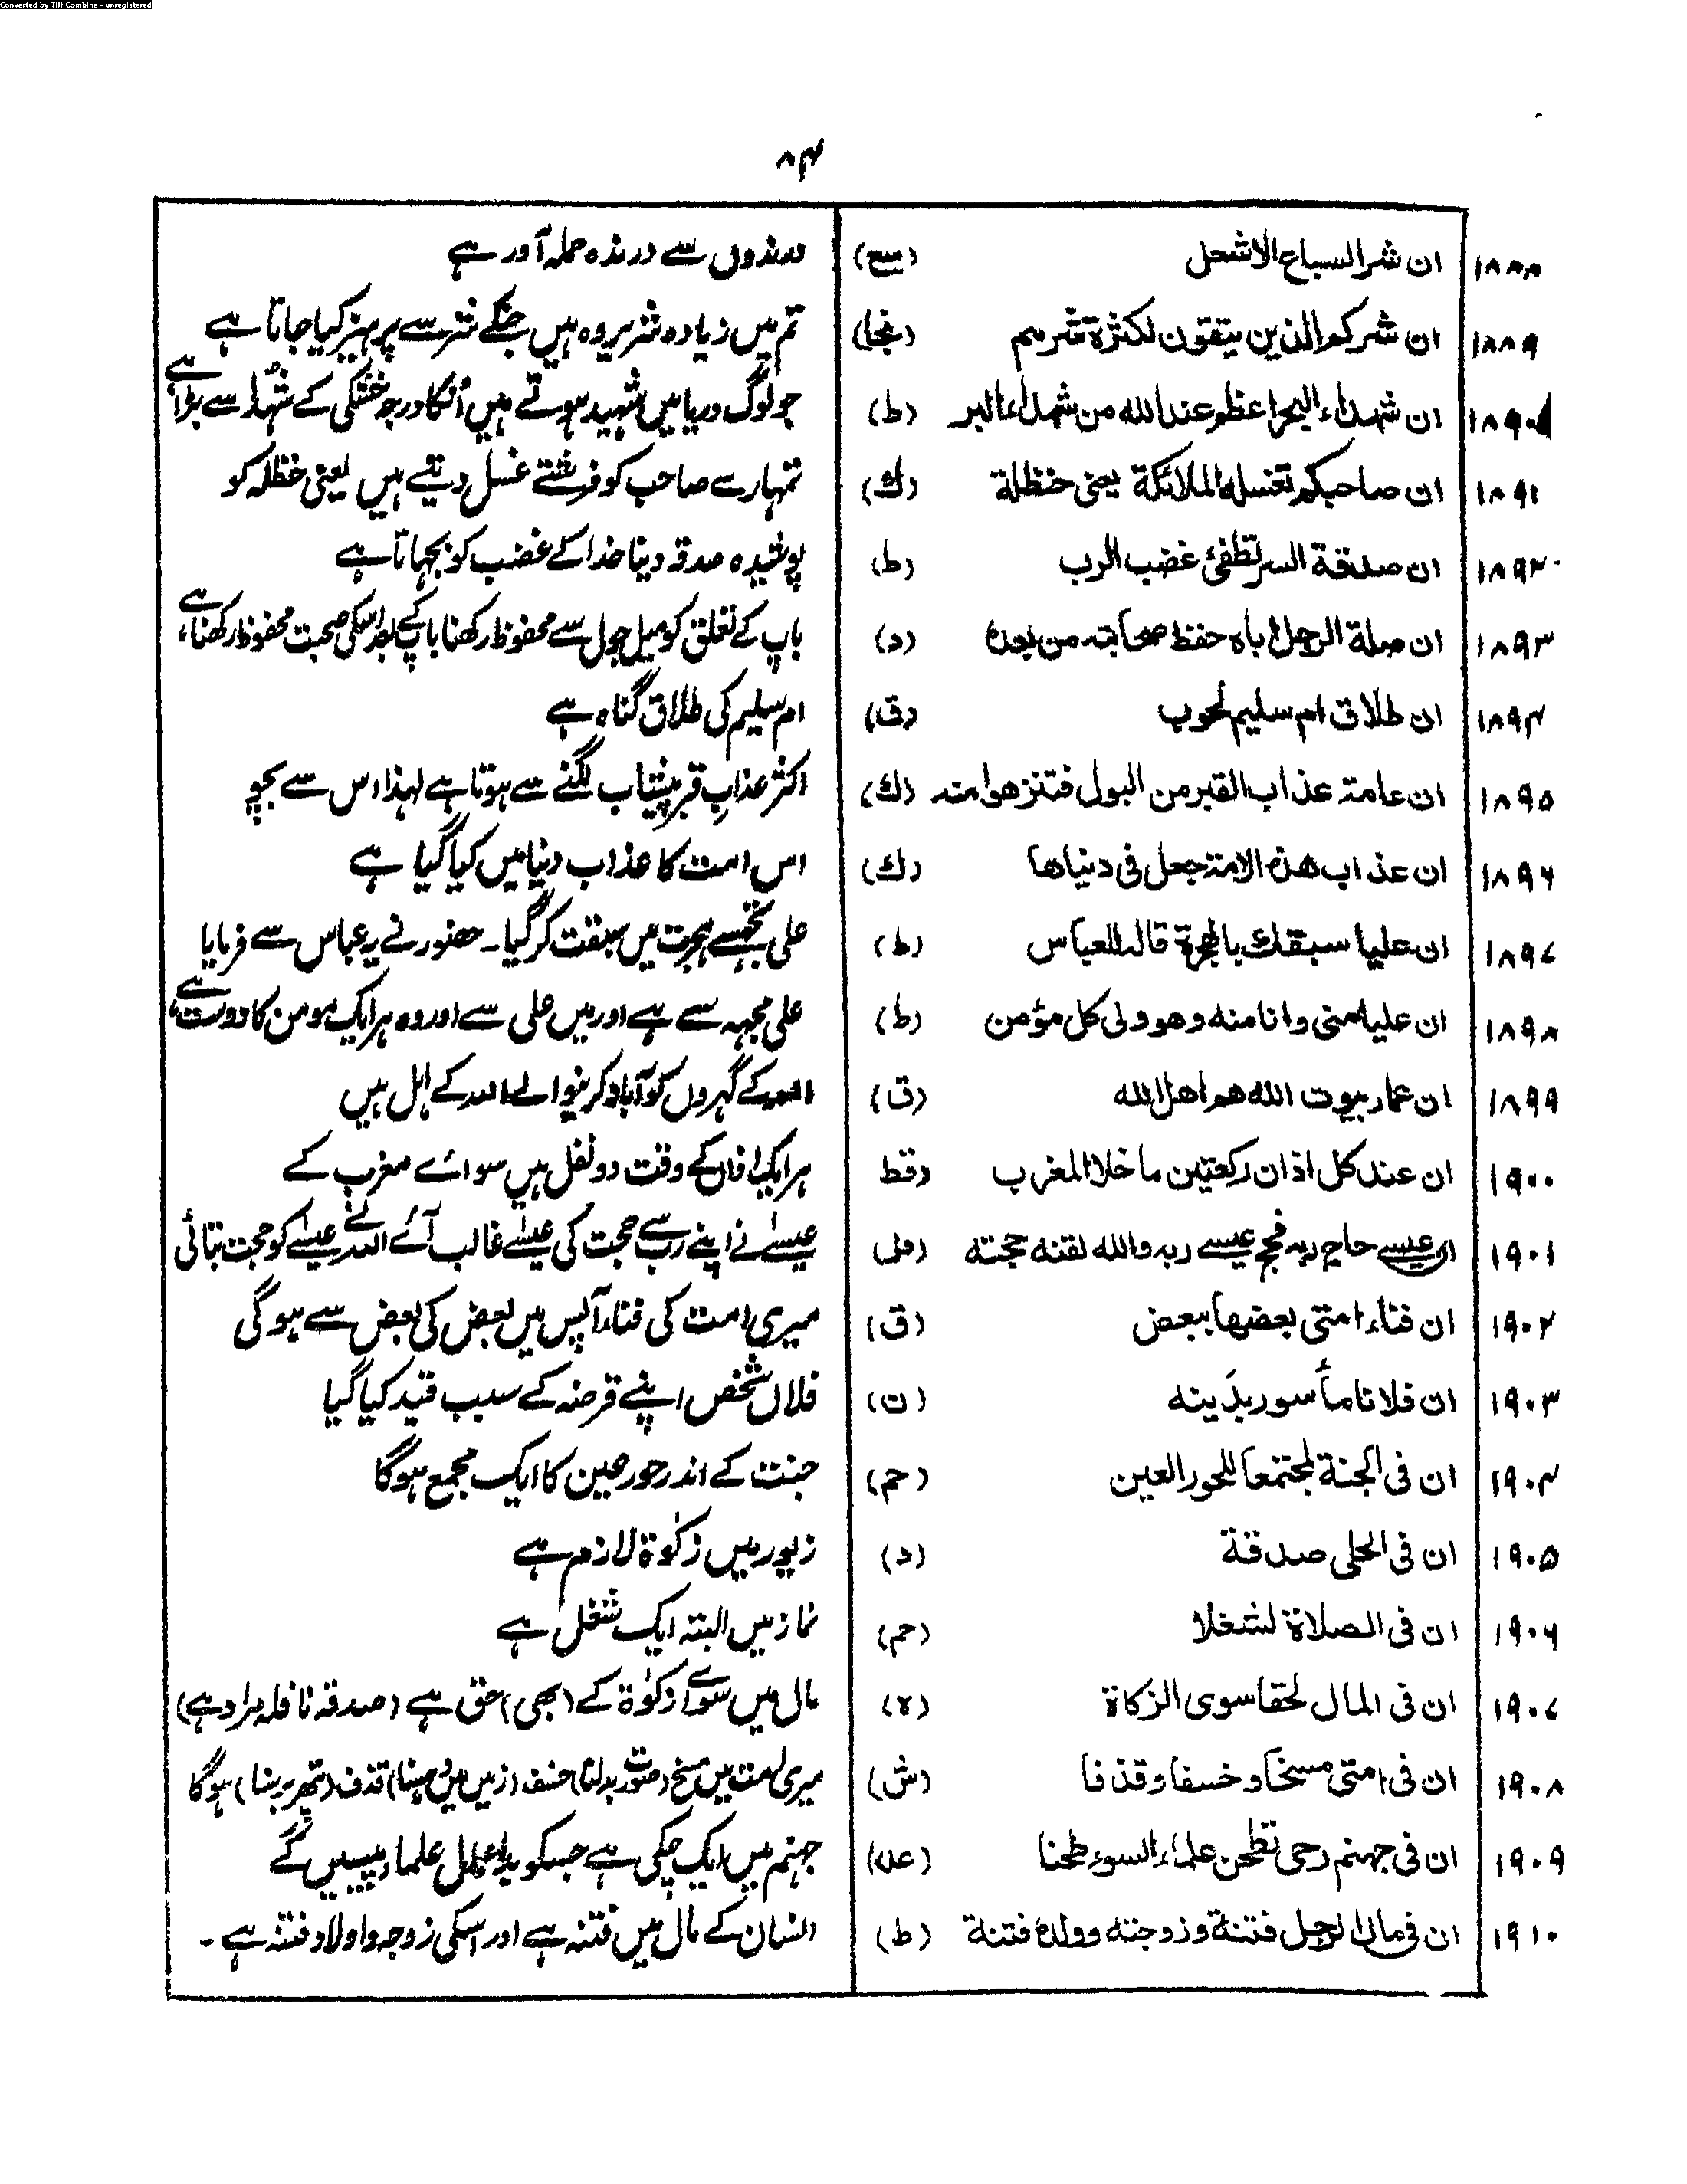 Converted by Tiff Combine - unregistered
۸۴
۱۸۸۸ ان شر السباع الاشحل (سع) درندوں سے درندہ حملہ آور ہے
۱۸۸۹ ان شرکم الذین یتقون لکثرة شرہم (نجا) تم میں زیادہ شریر وہ ہیں جنکے شر سے پرہیز کیا جاتا ہے
۱۸۹۰ ان شہداء البحر اعظم عند اللہ من شہداء البر (ط) جو لوگ دریا میں شہید ہوتے ہیں اُنکا درجہ خشکی کے شہدا سے بڑا ہے
۱۸۹۱ ان صاحبکم تغسلہ الملائکة یعنی حنظلة (ك) تمہارے صاحب کو فرشتے غسل دیتے ہیں یعنی حنظلہ کو
۱۸۹۲ ان صدقة السر تطفئ غضب الرب (ط) پوشیدہ صدقہ دینا خدا کے غضب کو بجہاتا ہے
۱۸۹۳ ان صلة الرجل اباہ حفظ صحابتہ من بعدہ (د) باپ کے تعلق کو میل جول سے محفوظ رکھنا باپ کے بعد اسکی صحبت محفوظ رکھنا ہے
۱۸۹۴ ان طلاق ام سلیم لحوب (ق) ام سلیم کی طلاق گناہ ہے
۱۸۹۵ ان عامة عذاب القبر من البول فتنزھوا منہ (ك) اکثر عذابِ قبر پیشاب لگنے سے ہوتا ہے لہذا اس سے بچو
۱۸۹۶ ان عذاب ھذہ الامة جعل فی دنیاھا (ك) اس امت کا عذاب دنیا میں کیا گیا ہے
۱۸۹۷ ان علیا سبقك بالھجرة قالہ للعباس (ط) علی تجہسے ہجرت میں سبقت کر گیا۔ حضور نے یہ عباس سے فرمایا
۱۸۹۸ ان علیا منی وانا منہ وھو ولی کل مؤمن (ط) علی مجہہ سے ہے اور میں علی سے اور وہ ہر ایک مومن کا دوست ہے
۱۸۹۹ ان عمار بیوت اللہ ھم اھل اللہ (ق) اللہ کے گہروں کو آباد کرنیوالے اللہ کے اہل ہیں
۱۹۰۰ ان عند کل اذان رکعتین ماخلا المغرب (قط ہر ایک اذان کے وقت دو نفل ہیں سوائے مغرب کے
۱۹۰۱ ان عیسے حاج ربہ فحج عیسے ربہ واللہ لقنہ حجتہ عیسےٰ نے اپنے رب سے حجت کی عیسےٰ غالب آئے اللہ نے عیسےٰ کو حجت بتائی
۱۹۰۲ ان فناء امتی بعضھا ببعض (ق) میری امت کی فناء آپس میں بعض کی بعض سے ہوگی
۱۹۰۳ ان فلانا مأسور بدَینہ (ن) فلاں شخص اپنے قرضہ کے سبب قید کیا گیا
۱۹۰۴ ان فی الجنة لمجتمعا للحور العین (حم) جنت کے اندر حور عین کا ایک مجمع ہوگا
۱۹۰۵ ان فی الحلی صدقة (د) زیور میں زکٰوة لازم ہے
۱۹۰۶ ان فی الصلاة لشغلا (حم) نماز میں البتہ ایک شغل ہے
۱۹۰۷ ان فی المال لحقا سوی الزکاة (ہ) مال میں سوائے زکٰوة کے (بھی) حق ہے (صدقہ نافلہ مراد ہے)
۱۹۰۸ ان فی امتی مسخا و خسفا و قذفا (ش) میری امت میں مسخ (صورت بدلنا) خسف (زمین میں دہسنا) قذف (پتھر برسنا) ہوگا
۱۹۰۹ ان فی جہنم رحی تطحن علماء السوء طحنا (عد) جہنم میں ایک چکی ہے جسکو بداعمال علماء پیسیں گے
۱۹۱۰ ان فی مال الرجل فتنة و زوجتہ وولدہ فتنة (ط) انسان کے مال میں فتنہ ہے اور اسکی زوجہ و اولاد فتنہ ہے ۔